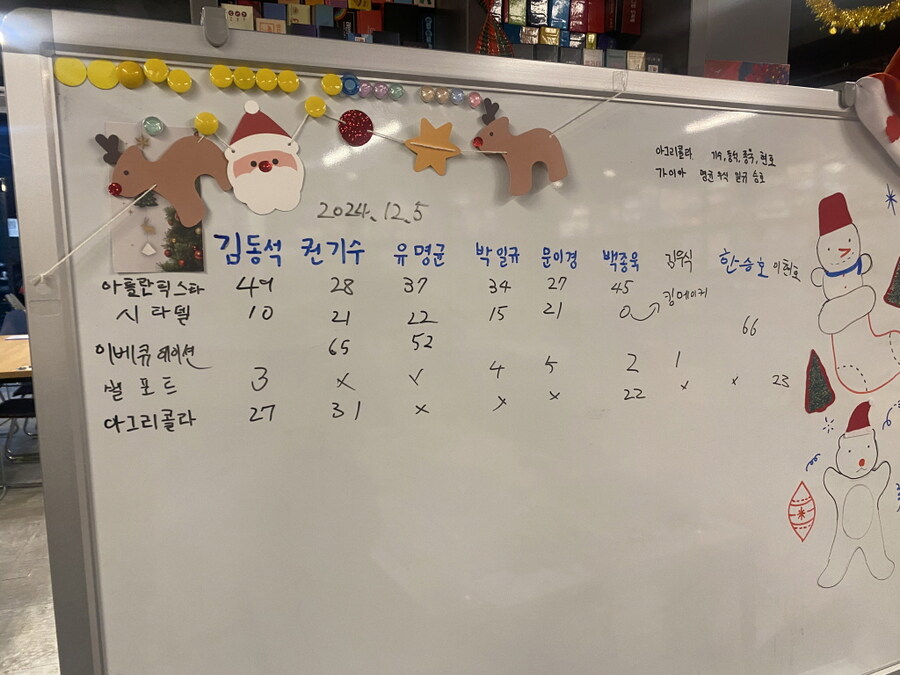 아그리콜라 기수, 동석, 종욱, 현호
가이아 명균 우식 일규 승호
2024.12.5
김동석 권기수 유명균 박일규 문이경 백종욱 김우식 한승호 이현호
아줄란픽스타 49 28 37 34 27 45
시타델 10 21 22 15 21 0 킹메이커
이베큐레이션 65 52 66
쉴포트 3 x x 4 5 2 1
아그리콜라 27 31 x x x 22 x x 23